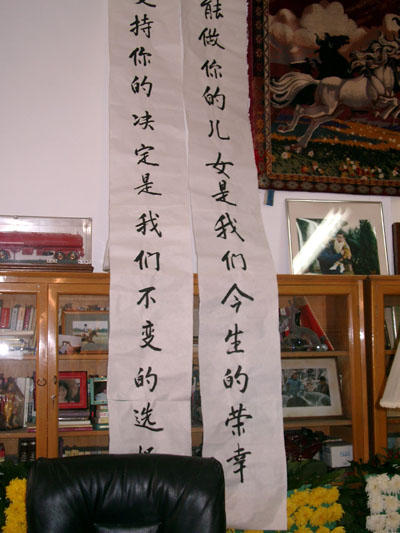 能做你的儿女是我们今生的荣幸
支持你的决定是我们不变的选择